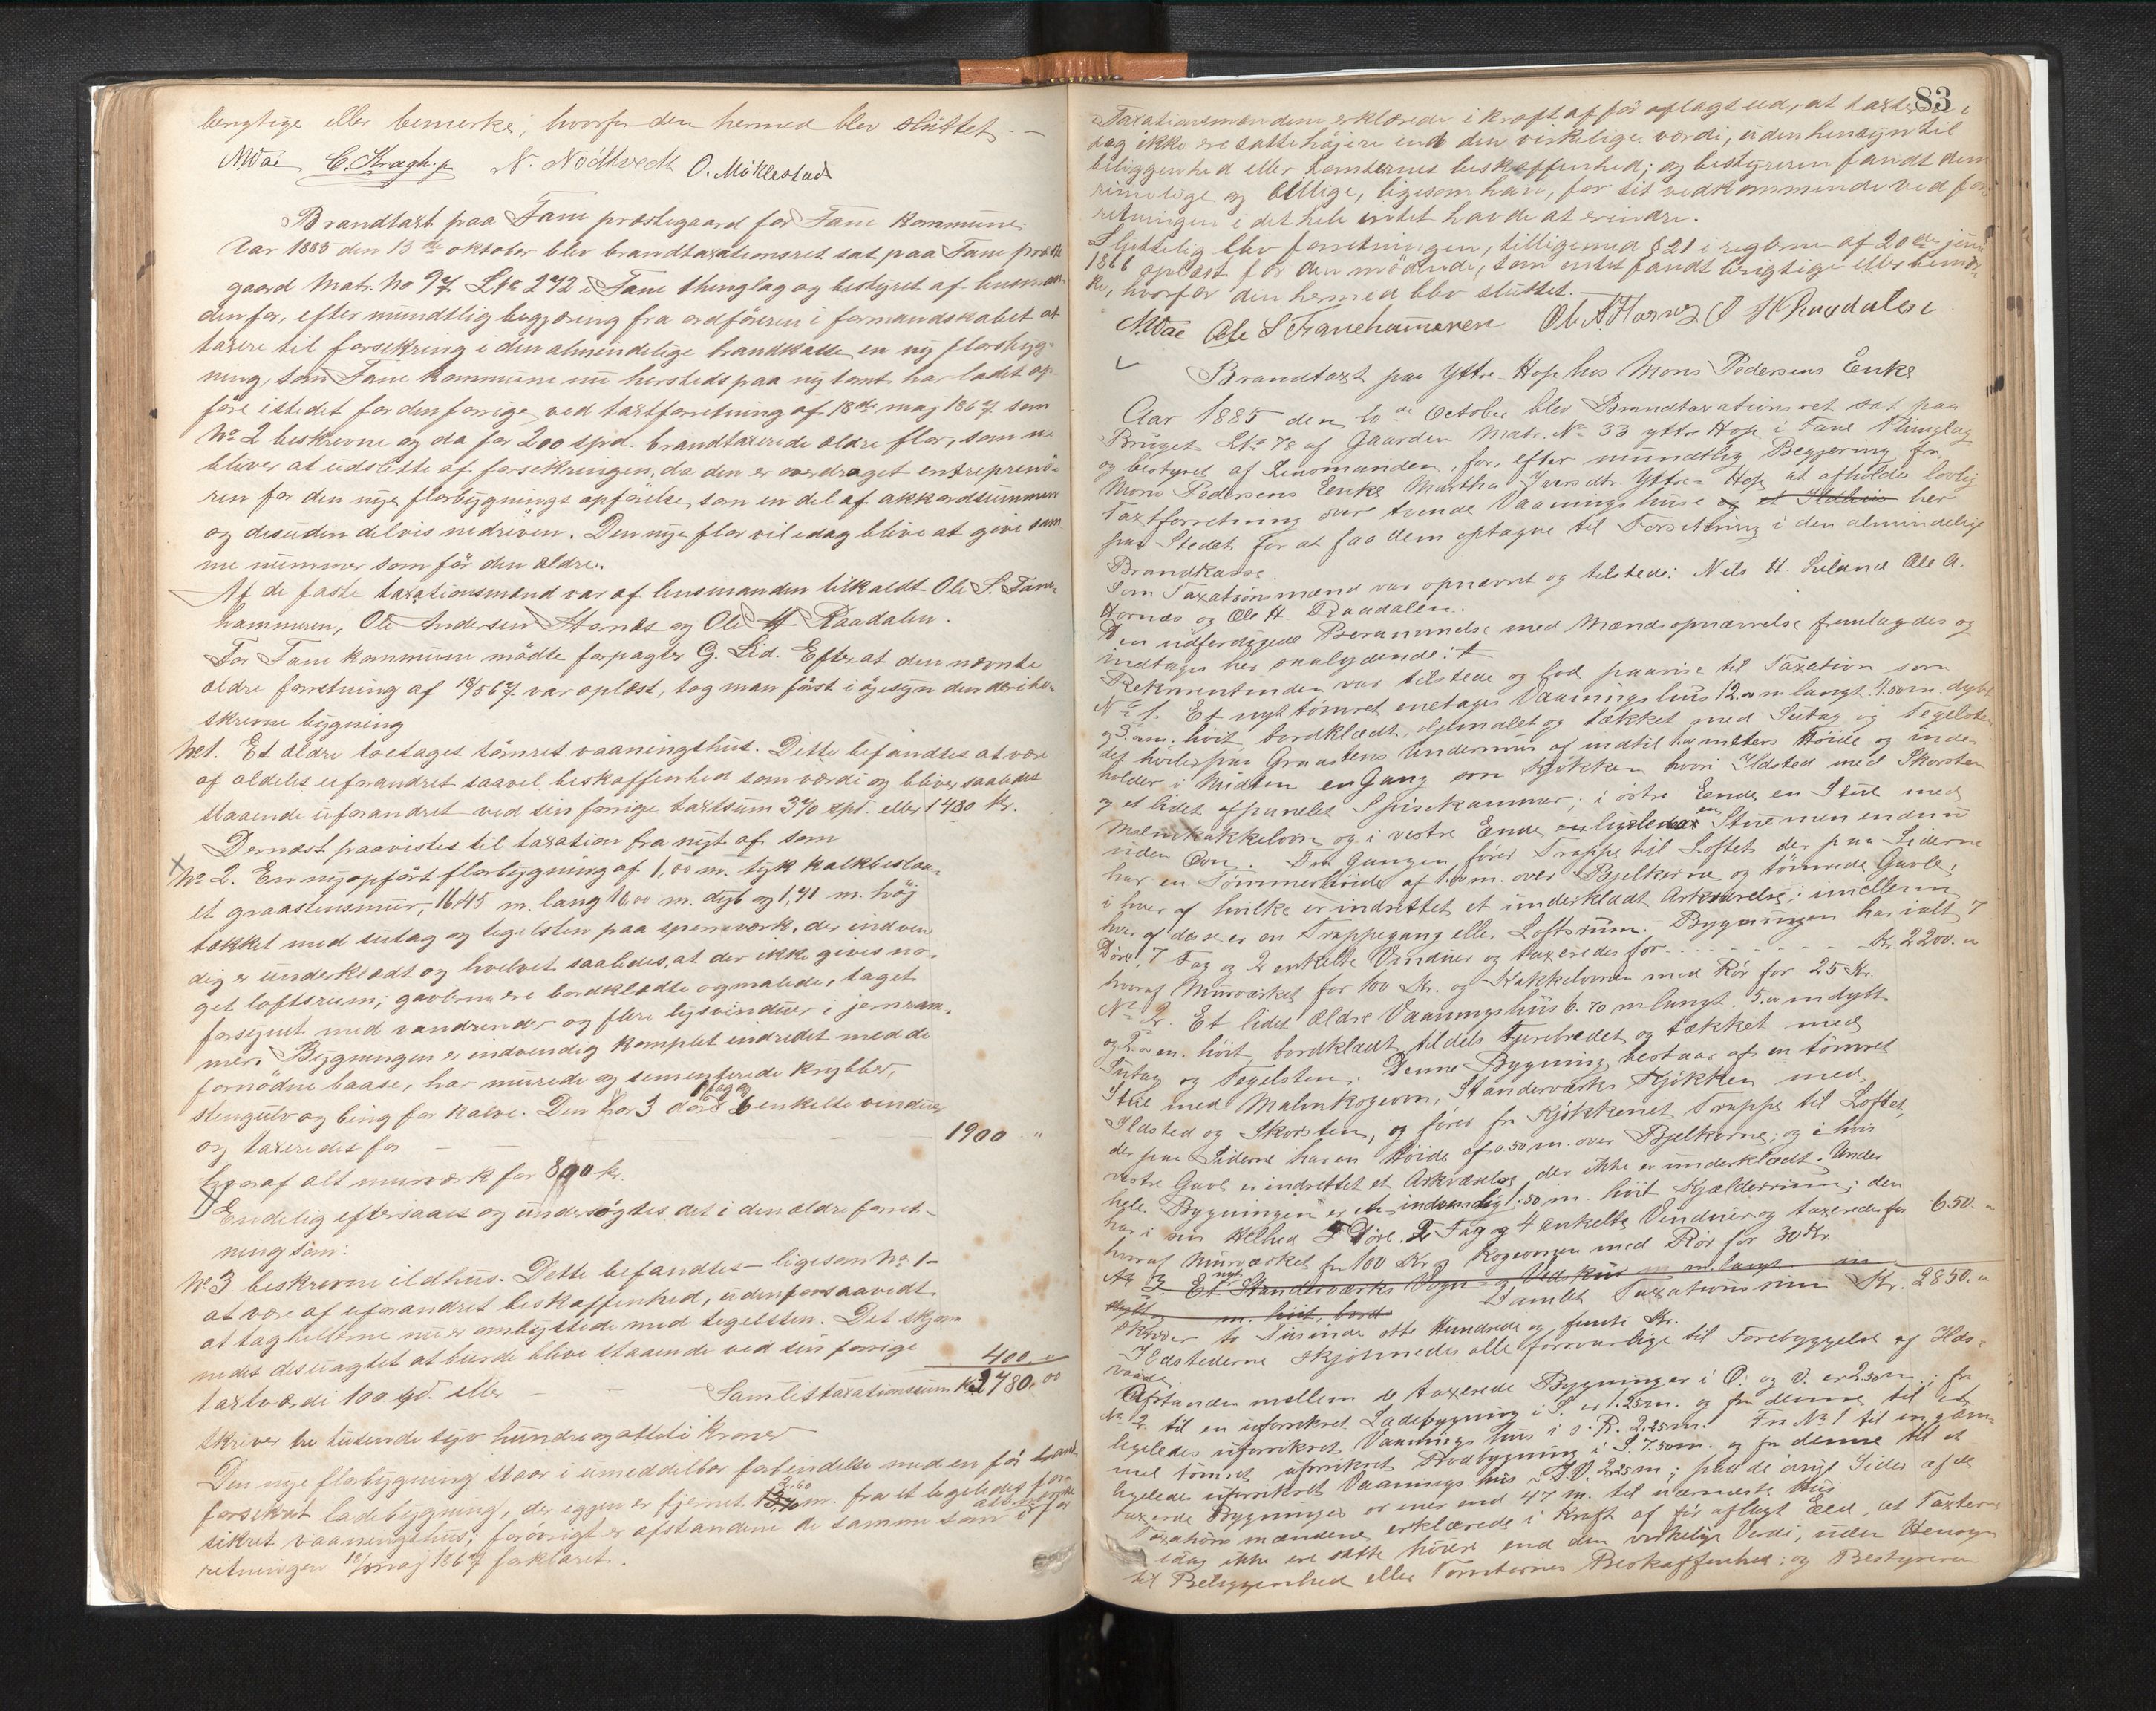 berigtige eller bemerke, hvorfor den hermed blev sluttet. —
NWae C. Kragh. p N. Nödtvedt O. Miklestad
Brandtaxt paa Fane prestegaard for Fane kommune.
Var 1885 den 13de oktober blev brandtaxationsret sat paa Fane preste-
gaard Matr. No 97 Lno 272 i Fane thinglag og bestyret af lensman-
den for, efter mundtlig begjæring fra ordföreren i formandskabet at
taxere til forsikring i den almindelige brandkasse en ny florsbyg-
ning, som Fane kommune nu hersteds paa ny tomt har ladet op-
före istedet for den forrige ved taxtforretning af 18de maj 1867 som
No 2 beskrevne og da for 200 spd. brandtaxerede ældre flor, som nu
bliver at udslette af forsikringen, da den er overdraget entreprenö-
ren for den nye florbygnings opförelse som en del af akkordsummen
og desuden delvis nedreven. Den nye flor vil idag blive at give sam-
me nummer som för den ældre.
Af de faste taxationsmænd var af lensmanden tilkaldt Ole S. Fane-
hammeren, Ole Andersen Hornæs og Ole H Raadalen.
For Fane kommune mödte forpagter G. Lid. Efterat den nævnte
ældre forretning af 18/5 67 var oplæst, tog man först i öjesyn den deri be-
skrevne bygning
No 1. Et ældre toetages tömret vaaningshus. Dette befandtes at være
af aldeles uforandret saavel beskaffenhed som værdi og bliver saaledes
staaende uforandret ved sin forrige taxtsum 370 spd. eller 1480 kr.
Dernæst paavistes til taxation fra nyt af som
No 2. En nyopfört florbygning af 1,00 m. tyk kalkbeslaa-
et graastensmur, 16,45 m. lang 16,00 m. dyb og 1,41 m. höj
tækket med sutag og teglsten paa sperreværk, der indven-
dig er underklædt og hvelvet saaledes, at der ikke gives no-
get loftsrum; gavlerne ere bordklædte og malede, taget
forsynet med vandrender og flere lysvinduer i jernram-
mer. Bygningen er indvendig komplet indredet med de
fornödne baase, har murede og sementerede krybber,
stengulv og bing for kalve. Den har 3 döre 1 fag og 6 enkelte vinduer
og taxeredes for — — — 1900 "
hvoraf alt murverk for 800 kr.
Endelig eftersaaes og undersögtes det i den ældre forret-
ning som:
No 3 beskrevne ildhus. Dette befandtes – ligesom No 1 –
at være af uforandret beskaffenhed, udenforsaavidt
at taghellerne nu er ombyttede med teglsten. Det skjøn-
nedes desuagtet at burde blive staaende ved sin forrige
taxtværdi 100 spd. eller — — 400. "
Samlet taxationssum kr 3780,00
skriver tre tusende syv hundre og otteti kroner
Den nye florbygning staar i umeddelbar forbindelse med en för brand-
forsikret ladebygning, der eggen er fjernet 12,60 m. fra et ligeledes for-
sikret vaaningshus; forövrigt er afstandene de samme som i for-
retningen 18/maj 1867 forklaret.
83
Taxationsmændene erklærede i kraft af för aflagt ed, at taxterne i
dag ikke ere satte højere end den virkelige værdi, uden hensyn til
beliggenhed eller tomternes beskaffenhed; og bestyreren fandt dem
rimelige og billige, ligesom han, for sit vedkommende ved for-
retningen i det hele intet havde at erindre.
Sluttelig blev forretningen, tilligemed § 21 i reglerne af 20de juni
1866 oplæst for den mödende, som intet fandt berigtige eller bemær-
ke, hvorfor den hermed blev sluttet.
NWae Ole S Fanehammeren Ole A. Hornæs O H Raadalen
Brandtaxt paa Yttre-Hop hos Mons Pedersens Enke
Aar 1885 den 20de October blev Brandtaxationsret sat paa
Bruget Lno 78 af Gaarden Matr. No 33 yttre Hop i Fane Thinglag
og bestyret af Lensmanden, for, efter mundtlig Begjering fra
Mons Pedersens Enke Martha Iversdtr. Yttre-Hop at afholde lovlig
Taxtforretning over tvende Vaaningshuse og et Ildhus her
paa Stedet for at faa dem optagne til Forsikring i den almindelige
Brandkasse.
Som Taxationsmænd var opnævnt og tilstede: Nils H. Liland Ole A.
Hornæs og Ole H. Raadalen.
Den udferdigede Berammelse med Mandsopnævnelse fremlagdes og
indtages her saalydende: †
Rekvirentinden var tilstede og lod paavise til Taxation som
No 1. Et nyt tömret enetages Vaaningshus 12.00 m langt 4.50 m. dybt
og 3.00 m. höit, bordklædt, oljemalet og tækket med Sutag og Teglsten
det hviler paa Graastens Undermur af indtil 1.00 meters Höide og inde-
holder i Midten en Gang som Kjökken hvori Ildsted med Skorsten
og et lidet afpanelet Spisekammer; i östre Ende en Stue med
Malmkakkelovn og i vestre Ende en ligeledes Stue men endnu
uden Ovn. Fra Gangen förer Trappe til Loftet der paa Siderne
har en Tömmerhöide af 1.00 m. over Bjelkerne og tömrede Gavle,
i hver af hvilke er indrettet et underklædt Arkværelse; imellem
hver af disse er en Trappegang eller Loftsrum. Bygningen har ialt 7
Döre, 7 Fag og 2 enkelte Vinduer og taxeredes for - - - - - Kr. 2200. "
hvoraf Murværket for 100 Kr. og Kakkelovnen med Rör for 25 Kr.
No 2. Et lidet ældre Vaaningshus 6.70 m langt. 5.00 m dybt
og 2.00 m. höit, bordklædt, tildels tjærebredet og tækket med
Sutag og Teglsten. Denne Bygning bestaar af en tömret
Stue med Malmkogeovn, Standerværks Kjökken med
Ildsted og Skorsten, og förer fra Kjökkenet Trappe til Loftet,
der paa Siderne har en Höide af 0.50 m. over Bjelkerne; og i hvis
vestre Gavl er indrettet et Arkværelse, der ikke er underklædt. Under
hele Bygningen er et indvendig 1.50 m. höit Kjælderrum; den
har i sin Helhed 5 Döre. 2 Fag og 4 enkelte Vinduer og taxeredes for 650. "
hvoraf Murværket for 100 Kr og Kogeovnen med Rör for 30 Kr.
No 3 Et nyt Standerværks Vogn- og Vedhus m langt. m
dybt m. höit, bord Samlet Taxationssum Kr. 2850. "
skriver to Tusinde otte Hundrede og femti Kr.
Ildstederne skjönnedes alle forsvarlige til Forebyggelse af Ilds-
vaade.
Afstanden mellem de taxerede Bygninger i Ö. og V. er 2.50 m.; fra
No 2 til en uforsikret Ladebygning i S. er 1.25 m. og fra denne til et
ligeledes uforsikret Vaanings hus i s. R. 2.25 m. Fra No 1 til en gam-
mel tömret uforsikret Rodbygning i S. 7.50 m. og fra denne til et
ligeledes uforsikret Vaanings hus i S.V. 2.25 m; paa de övrige Sider af de
taxerede Bygninger er mer end 47 m. til nærmeste Hus
Taxationsmændene erklærede i Kraft af för aflagt Eed, at Taxterne
idag ikke ere satte höiere end den virkelige Værdi, uden Hensyn
til Beliggenhed eller Tomternes Beskaffenhed; og Bestyreren